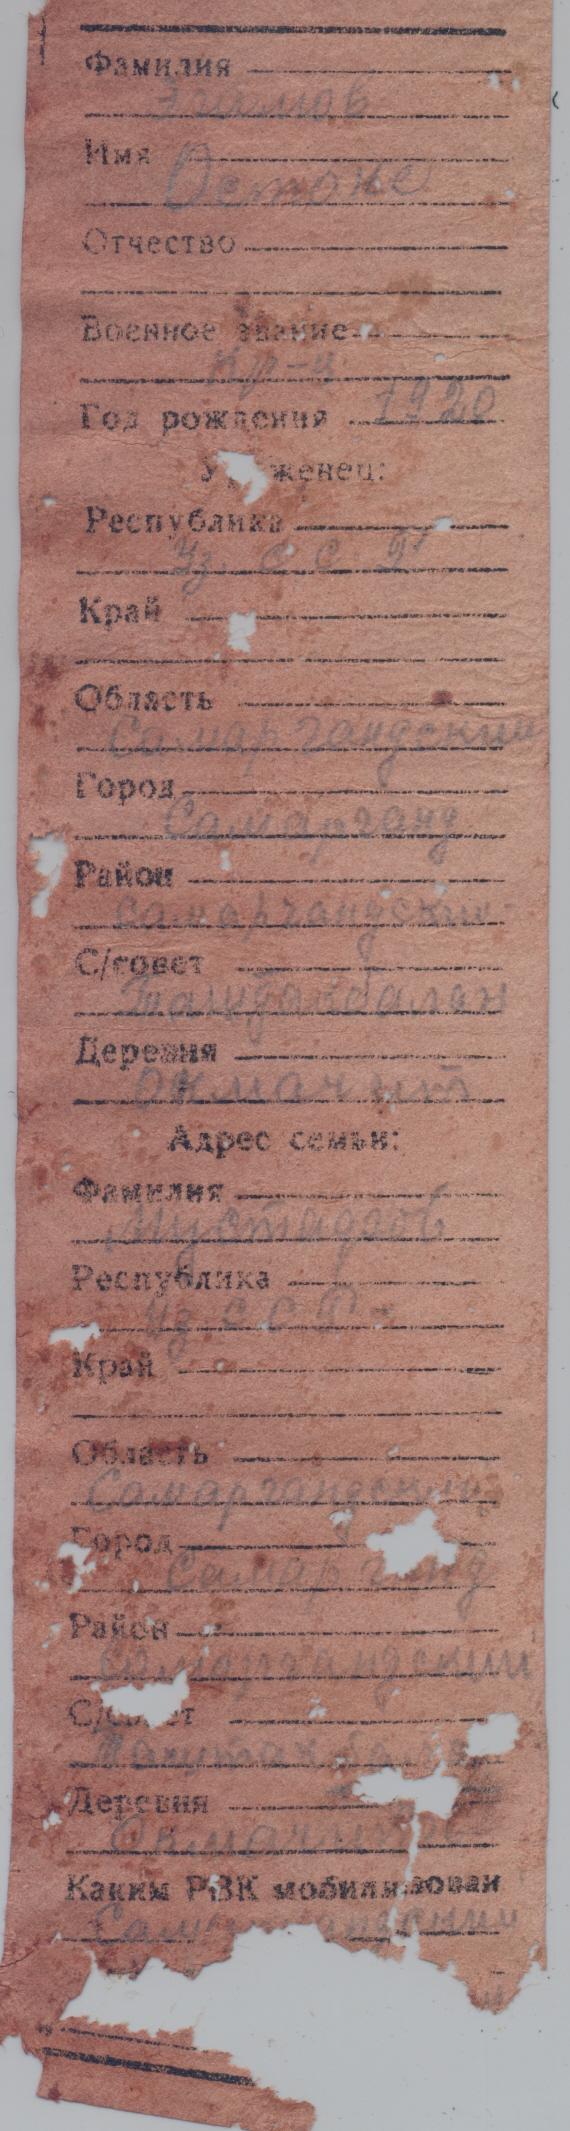 Фамилия
Эгамов
Имя
Остоне
Отчество
Военное звание
кр-ц
Год рождения 1920
Уроженец:
Республика
Уз С С Р
Край
Область
Самаргандский
Город
Самарганд
Район
Самаргандский
С/совет
Деревня
Окмачит
Адрес семьи:
Фамилия
Республика
Уз С С Р
Край
Область
Самаргандский
Город
Самарганд
Район
Самаргандский
С/совет
Деревня
Окмачит
Каким РВК мобилизован
Самаргандский